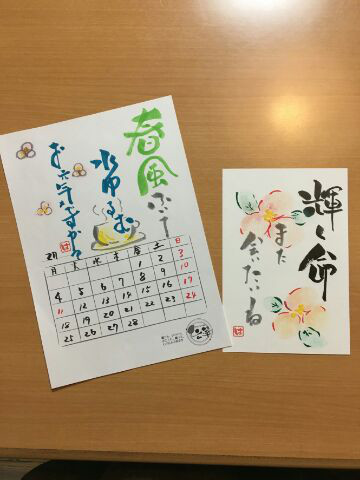 春風
水ゆるむ
お元気ですか
2月
月 火 水 木 金 土 日
1 2 3
4 5 6 7 8 9 10
11 12 13 14 15 16 17
18 19 20 21 22 23 24
25 26 27 28
輝く命
また
会いたいね